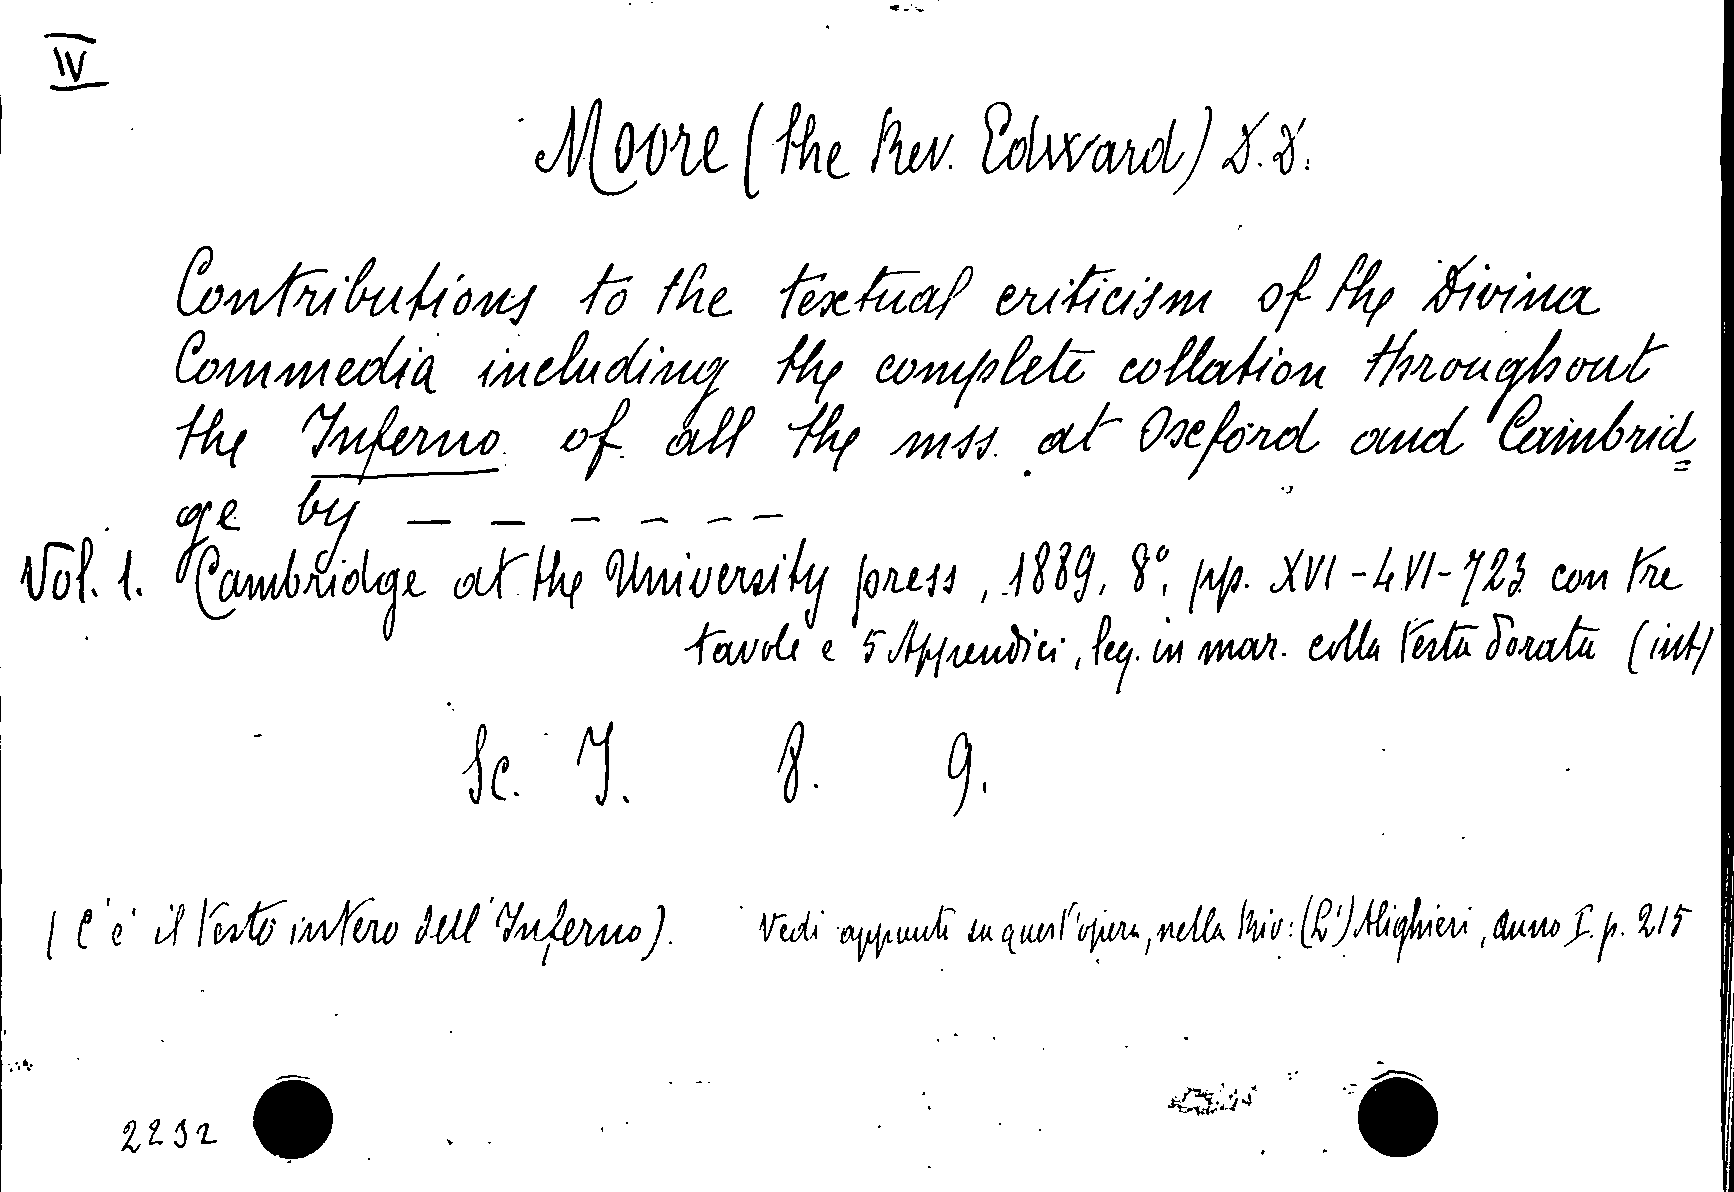 IV
Moore (the Rev. Edward) D.D.
Contributions to the textual criticism of the Divina
Commedia including the complete collation throughout
the Inferno of all the mss. at Oxford and Cambrid=
ge by — — — — — —
Vol. 1. Cambridge at the University press, 1889, 8°, pp. XVI-LVI-723 con tre
tavole e 5 Appendici, leg. in mar. colla testa dorata (int)
Sc. I. 8. 9.
(C'è il testo intero dell'Inferno). Vedi appunti su quest'opera, nella Riv: (L') Alighieri, anno I. p. 215
2232